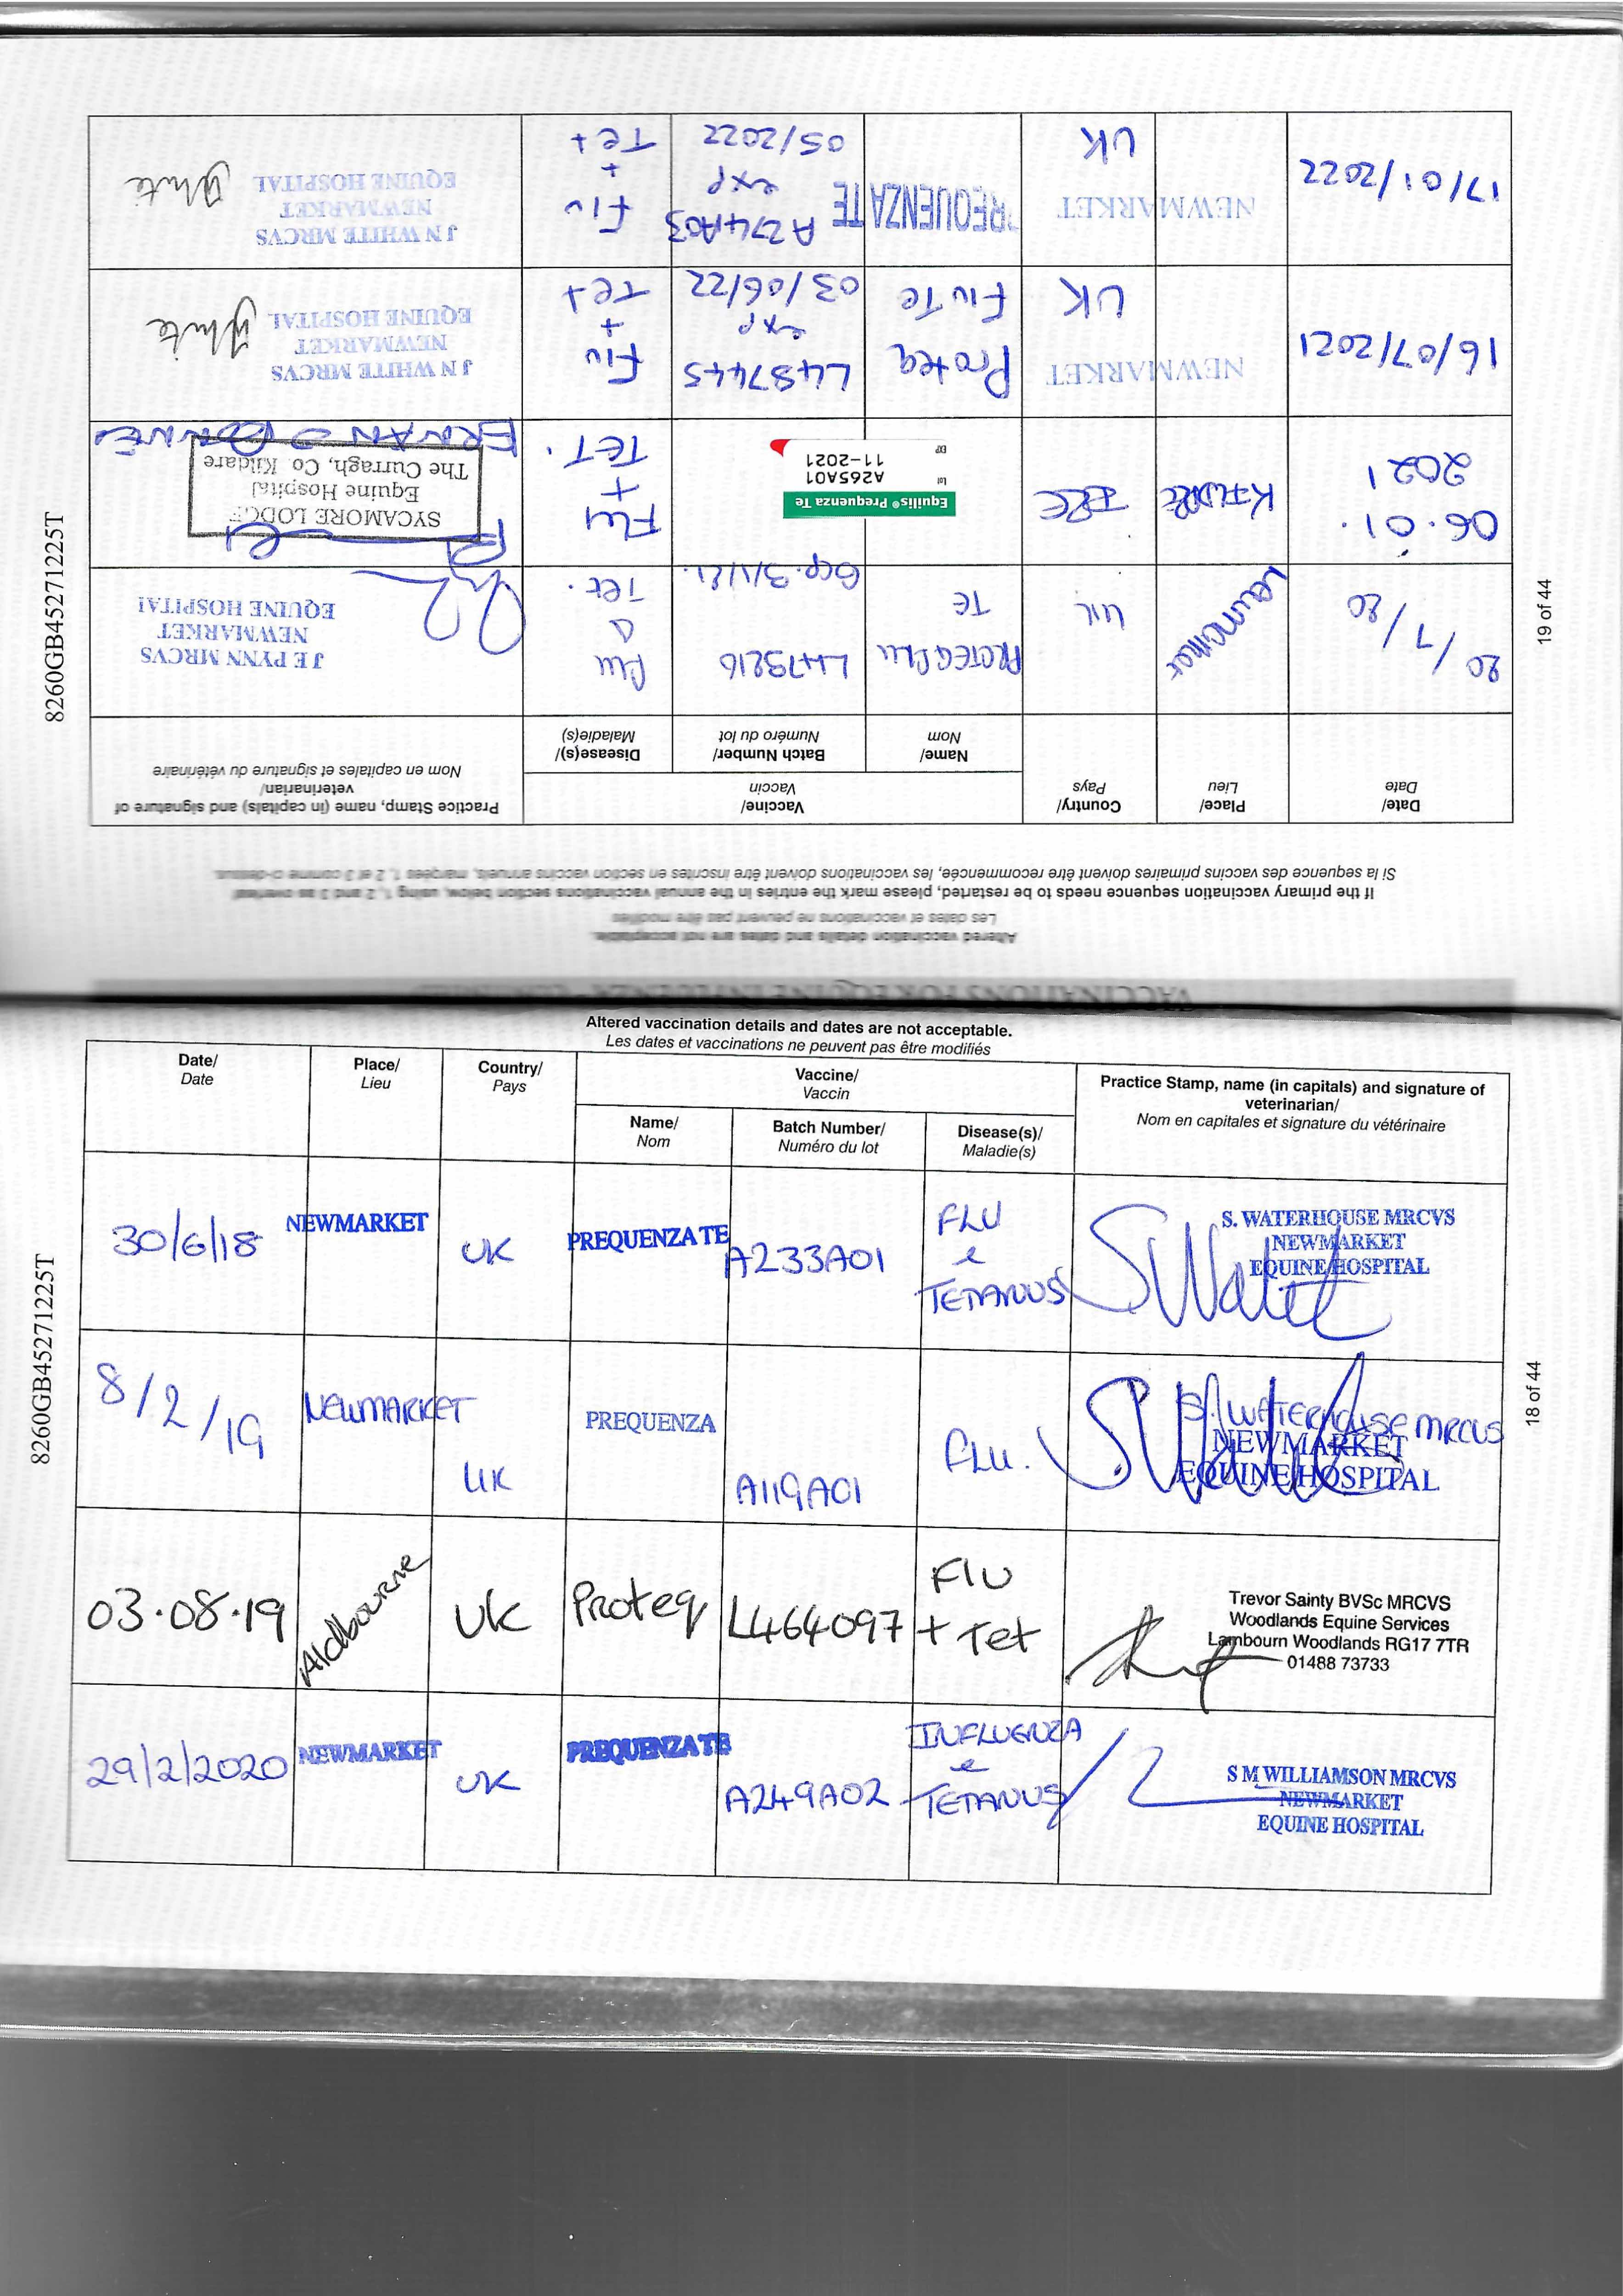 8260GB45271225T
18 of 44
Altered vaccination details and dates are not acceptable.
Les dates et vaccinations ne peuvent pas être modifiés
Date/
Date
Place/
Lieu
Country/
Pays
Vaccine/
Vaccin
Name/
Nom
Batch Number/
Numéro du lot
Disease(s)/
Maladie(s)
Practice Stamp, name (in capitals) and signature of
veterinarian/
Nom en capitales et signature du vétérinaire
30/6/18
NEWMARKET
UK
PREQUENZA TE
A233A01
FLU
e
TETANUS
S. WATERHOUSE MRCVS
NEWMARKET
EQUINE HOSPITAL
8/2/19
NEWMARKET
UK
PREQUENZA
A119A01
FLU.
S. WATERHOUSE MRCVS
NEWMARKET
EQUINE HOSPITAL
03.08.19
Aldbourne
UK
Proteq
L464097
Flu
+ Tet
Trevor Sainty BVSc MRCVS
Woodlands Equine Services
Lambourn Woodlands RG17 7TR
01488 73733
29/2/2020
NEWMARKET
UK
PREQUENZA TE
A249A02
INFLUENZA
e
TETANUS
S M WILLIAMSON MRCVS
NEWMARKET
EQUINE HOSPITAL
8260GB45271225T
19 of 44
VACCINATIONS FOR EQUINE INFLUENZA
Altered vaccination details and dates are not acceptable.
Les dates et vaccinations ne peuvent pas être modifiés
If the primary vaccination sequence needs to be restarted, please mark the entries in the annual vaccinations section below, using 1, 2 and 3 as overleaf
Si la sequence des vaccins primaires doivent être recommencée, les vaccinations doivent être inscrites en section vaccins annuels, marquées 1, 2 et 3 comme ci-dessus.
Date/
Date
Place/
Lieu
Country/
Pays
Vaccine/
Vaccin
Name/
Nom
Batch Number/
Numéro du lot
Disease(s)/
Maladie(s)
Practice Stamp, name (in capitals) and signature of
veterinarian/
Nom en capitales et signature du vétérinaire
20/7/20
UK
PROTEQ FLU
TE
L473216
Flu
Tet.
J E PYNN MRCVS
NEWMARKET
EQUINE HOSPITAL
06.01.
2021
KILDARE
IRE
Equilis® Prequenza Te
Lot A265A01
EXP 11-2021
Flu
+
TET.
SYCAMORE LODGE
Equine Hospital
The Curragh, Co Kildare
16/07/2021
NEWMARKET
UK
Proteq
Flu Te
L487445
exp
03/06/22
Flu
+
Tet
J N WHITE MRCVS
NEWMARKET
EQUINE HOSPITAL
White
17/01/2022
NEWMARKET
UK
PREQUENZA TE
A274A03
exp
05/2022
Flu
+
Tet
J N WHITE MRCVS
NEWMARKET
EQUINE HOSPITAL
White